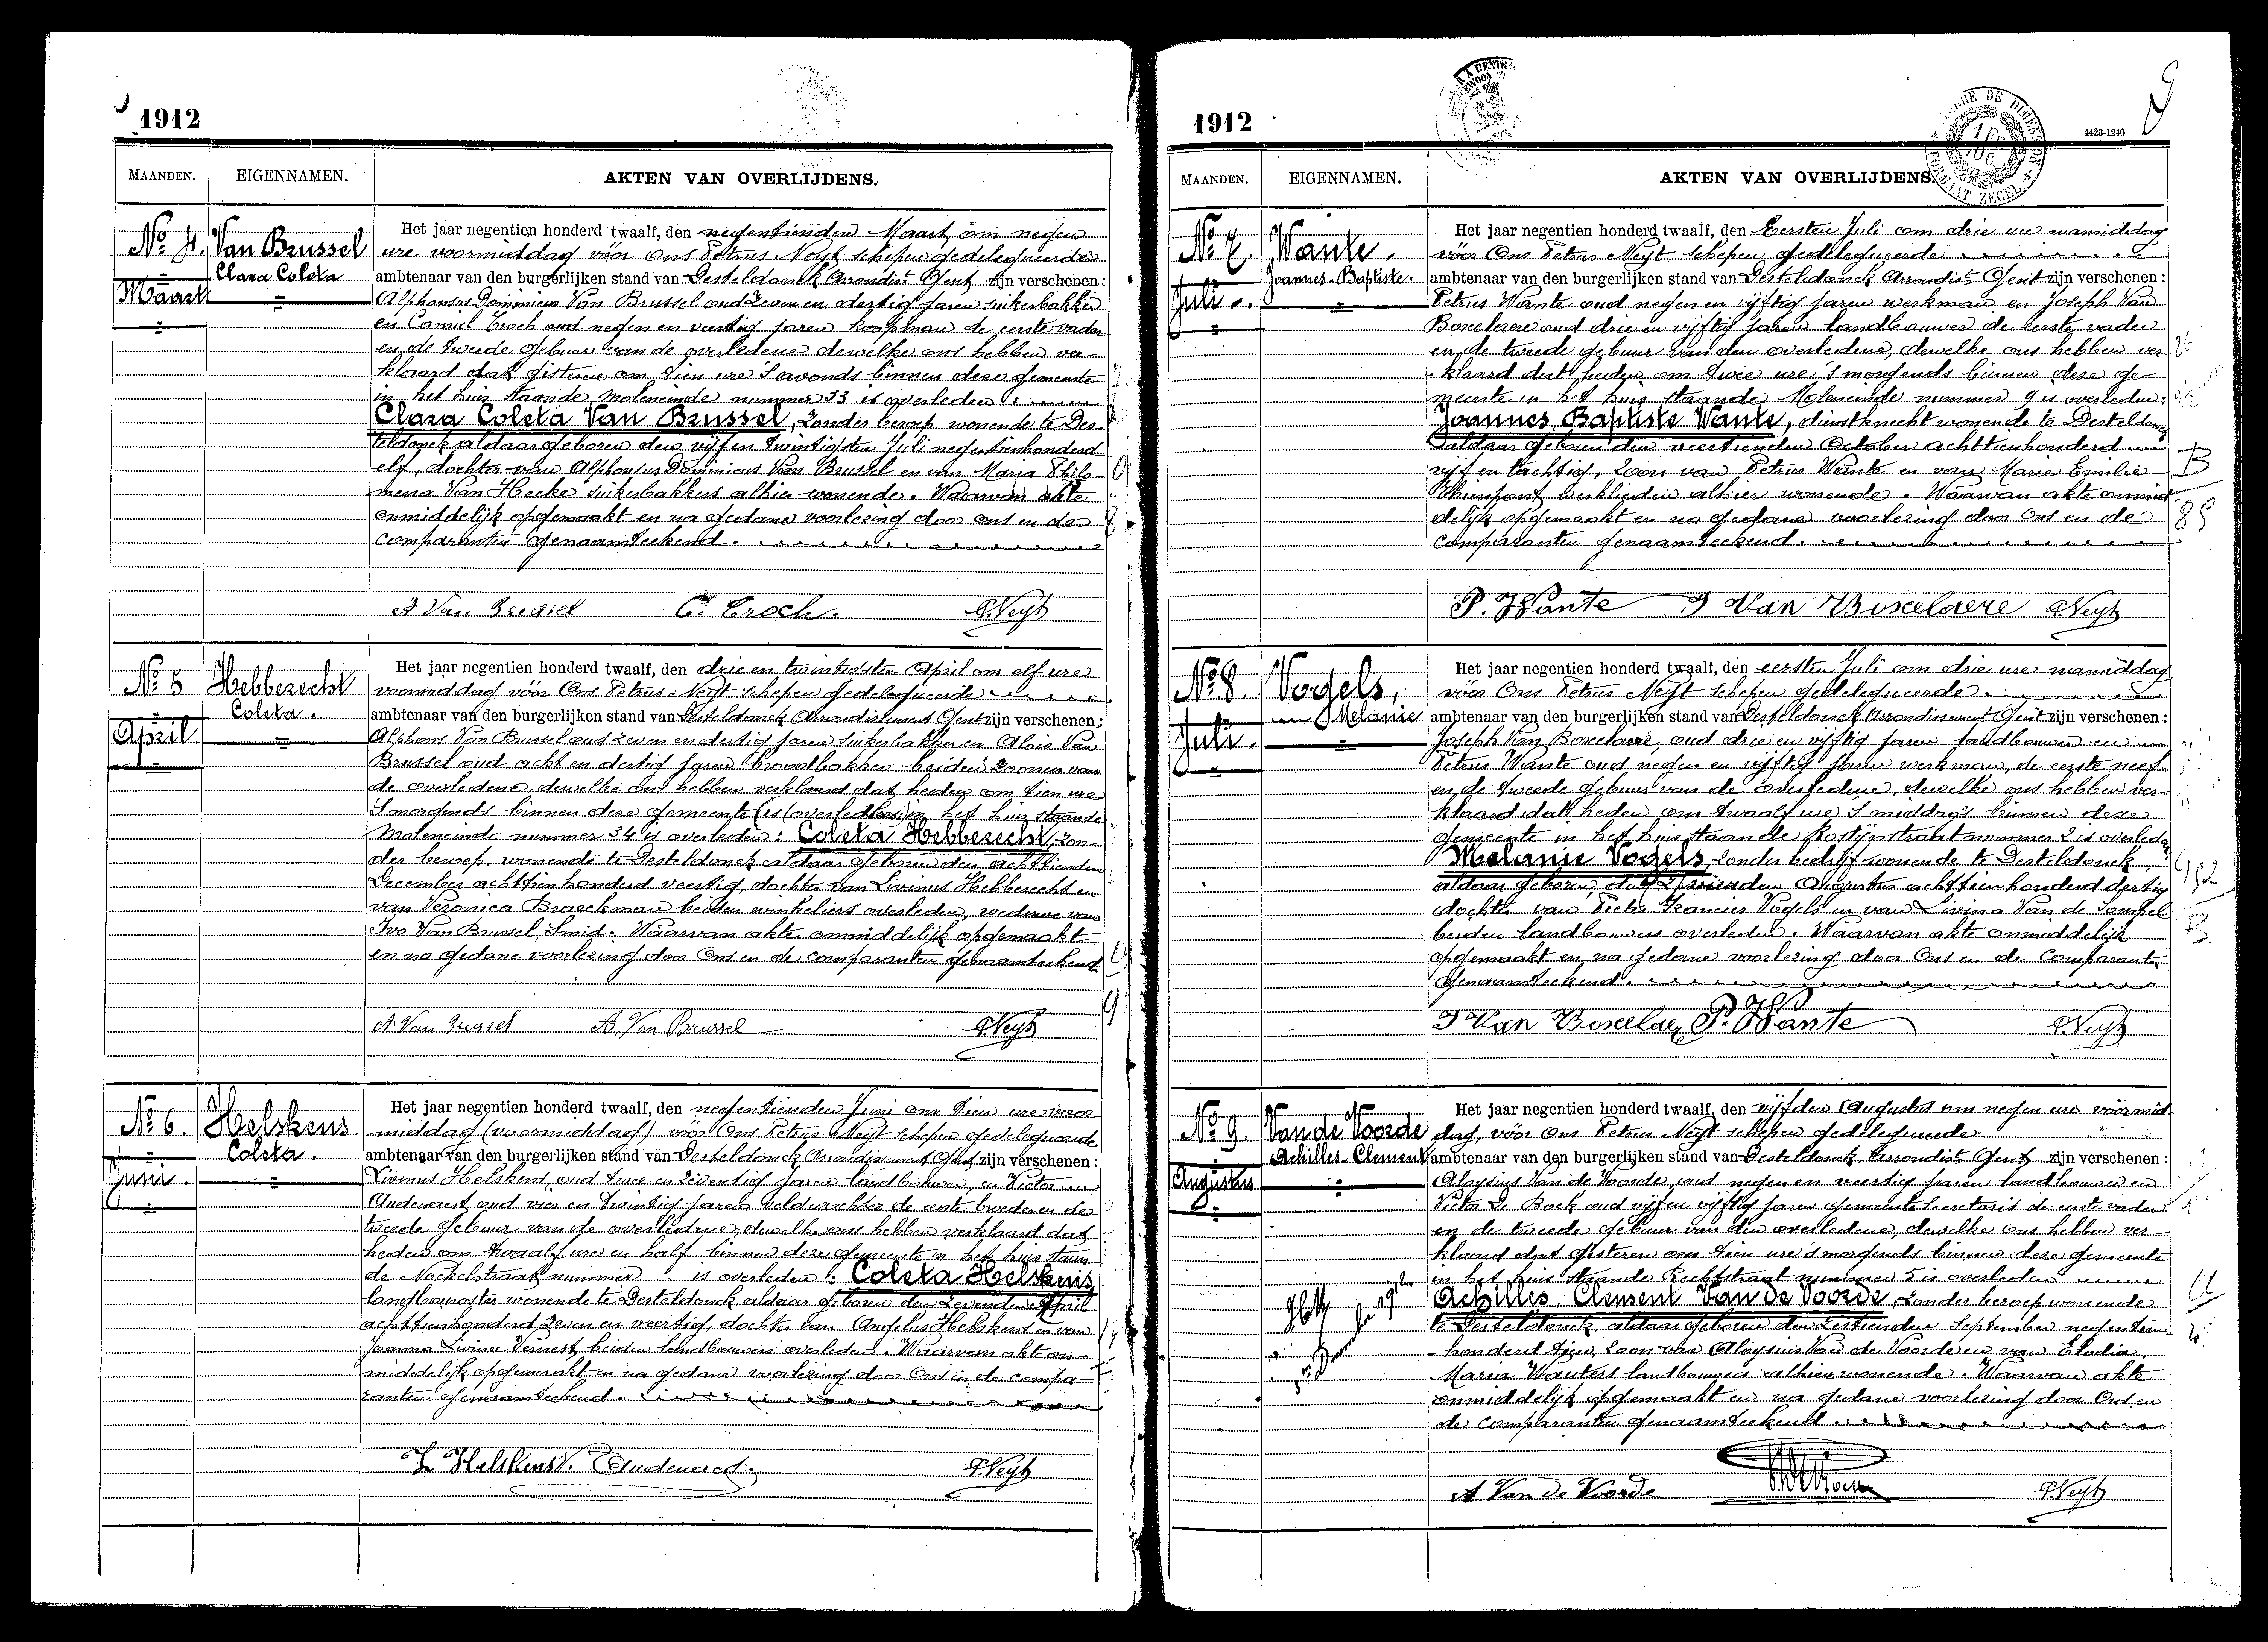 1912
MAANDEN. EIGENNAMEN. AKTEN VAN OVERLIJDENS.
No 4. Van Brussel
Clara Coleta
Maart
Het jaar negentien honderd twaalf, den negentienden Maart, om negen
ure voormiddag vóór ons Petrus Neyt schepen gedelegueerden
ambtenaar van den burgerlijken stand van Desteldonck Arrondist Gent zijn verschenen:
Alphonsus Dominicus Van Brussel oud zeven en dertig jaren suikerbakker
en Camiel Croch oud negen en veertig jaren koopman de eerste vader
en de tweede gebuur van de overledene dewelke ons hebben ver-
klaard dat gisteren om tien ure 's avonds binnen deze gemeente
in het huis staande Moleneinde nummer 33 is overleden:
Clara Coleta Van Brussel, zonder beroep wonende te Des-
teldonck aldaar geboren den vijf en twintigsten Juli negentienhonderd
elf, dochter van Alphonsus Dominicus Van Brussel en van Maria Philo-
mena Van Hecke suikerbakkers alhier wonende. Waarvan akte
onmiddelijk opgemaakt en na gedane voorlezing door ons en de
comparanten genaamteekend.
A Van Brussel C. Croch. P. Neyt
No 5 Hebberecht
Coleta.
April
Het jaar negentien honderd twaalf, den drie en twintigsten April om elf ure
voormiddag vóór Ons Petrus Neyt schepen gedelegueerde
ambtenaar van den burgerlijken stand van Desteldonck Arrondissement Gent zijn verschenen:
Alphons Van Brussel oud zeven en dertig jaren suikerbakker en Alois Van
Brussel oud acht en dertig jaren broodbakker beiden zoonen van
de overledene dewelke ons hebben verklaard dat heden om tien ure
's morgends binnen deze gemeente (is overleden) in het huis staande
Moleneinde nummer 34 is overleden: Coleta Hebberecht, zon-
der beroep, wonende te Desteldonck aldaar geboren den achttienden
December achttien honderd veertig, dochter van Livinus Hebberecht en
van Veronica Braeckman beiden winkeliers overleden, weduwe van
Ivo Van Brussel, Smid. Waarvan akte onmiddelijk opgemaakt
en na gedane voorlezing door Ons en de comparanten genaamteekend
A. Van Brussel A. Van Brussel P. Neyt
No 6. Helskens
Coleta.
Juni.
Het jaar negentien honderd twaalf, den negentienden Juni om tien ure voor
middag (voormiddag) vóór Ons Petrus Neyt schepen gedelegueerde
ambtenaar van den burgerlijken stand van Desteldonck Arrondissement Gent zijn verschenen:
Livinus Helskens, oud twee en zeventig jaren landbouwer, en Victor
Audenaert oud vier en twintig jaren veldwachter de eerste broeder en de
tweede gebuur van de overledene, dewelke ons hebben verklaard dat
heden om twaalf ure en half binnen deze gemeente in het huis staan
de Nockelstraat nummer is overleden: Coleta Helskens
landbouwster wonende te Desteldonck aldaar geboren den zevenden April
achttienhonderd zeven en veertig, dochter van Angelus Helskens en van
Joanna Livina Vernest, beiden landbouwers overleden. Waarvan akte on-
middelijk opgemaakt en na gedane voorlezing door Ons en de compa-
ranten genaamteekend.
L Helskens V. Audenaert. P. Neyt
1912
4423-1240
MAANDEN. EIGENNAMEN. AKTEN VAN OVERLIJDENS.
No 7. Wante.
Joannes-Baptiste.
Juli.
Het jaar negentien honderd twaalf, den Eersten Juli om drie ure namiddag
vóór Ons Petrus Neyt schepen gedelegueerde
ambtenaar van den burgerlijken stand van Desteldonck Arrondist Gent zijn verschenen:
Petrus Wante oud negen en vijftig jaren werkman en Joseph Van
Boxelaere oud drie en vijftig jaren landbouwer de eerste vader
en de tweede gebuur van den overledene, dewelke ons hebben ver-
klaard dat heden om twee ure 's morgends binnen deze ge-
meente in het huis staande Moleneinde nummer 9 is overleden:
Joannes Baptiste Wante, dienstknecht wonende te Desteldonck
aldaar geboren den veertienden October achttienhonderd
vijf en tachtig, zoon van Petrus Wante en van Marie Emilie
Thienpont werklieden alhier wonende. Waarvan akte onmid-
delijk opgemaakt en na gedane voorlezing door Ons en de
comparanten genaamteekend.
B
85
P. Wante J Van Boxelaere P. Neyt
No 8. Vogels,
Melanie
Juli.
Het jaar negentien honderd twaalf, den eersten Juli om drie ure namiddag
vóór Ons Petrus Neyt schepen gedelegueerde.
ambtenaar van den burgerlijken stand van Desteldonck Arrondissement Gent zijn verschenen:
Joseph Van Boxelaere, oud drie en vijftig jaren landbouwer en
Petrus Wante oud negen en vijftig jaren werkman, de eerste neef
en de tweede gebuur van de overledene, dewelke ons hebben ver-
klaard dat heden om twaalf ure 's middags binnen deze
gemeente in het huis staande Rostijnstraat nummer 2 is overleden
Melanie Vogels, zonder bedrijf wonende te Desteldonck
aldaar geboren den vierden Augustus achttien honderd dertig
dochter van Pieter Francies Vogels en van Livina Van de Sompel
beiden landbouwers overleden. Waarvan akte onmiddelijk
opgemaakt en na gedane voorlezing door Ons en de Comparanten
genaamteekend.
J Van Boxelaere P. Wante P. Neyt
No 9. Van de Voorde
Achilles-Clement
Augustus
Het jaar negentien honderd twaalf, den vijfden Augustus om negen ure voormid-
dag, vóór Ons Petrus Neyt schepen gedelegueerde
ambtenaar van den burgerlijken stand van Desteldonck, Arrondist Gent zijn verschenen:
Aloysius Van de Voorde oud negen en veertig jaren landbouwer en
Victor De Bock oud vijf en vijftig jaren gemeente secretaris de eerste vader
en de tweede gebuur van den overledene, dewelke ons hebben ver-
klaard dat gisteren om tien ure 's morgends binnen deze gemeente
in het huis staande Rechtstraat nummer 5 is overleden
Achilles Clement Van de Voorde, zonder beroep wonende
te Desteldonck aldaar geboren den zestienden September negentien
honderd tien, zoon van Aloysius Van de Voorde en van Elodia
Maria Wauters landbouwers alhier wonende. Waarvan akte
onmiddelijk opgemaakt en na gedane voorlezing door Ons en
de comparanten genaamteekend.
A Van de Voorde P. Neyt